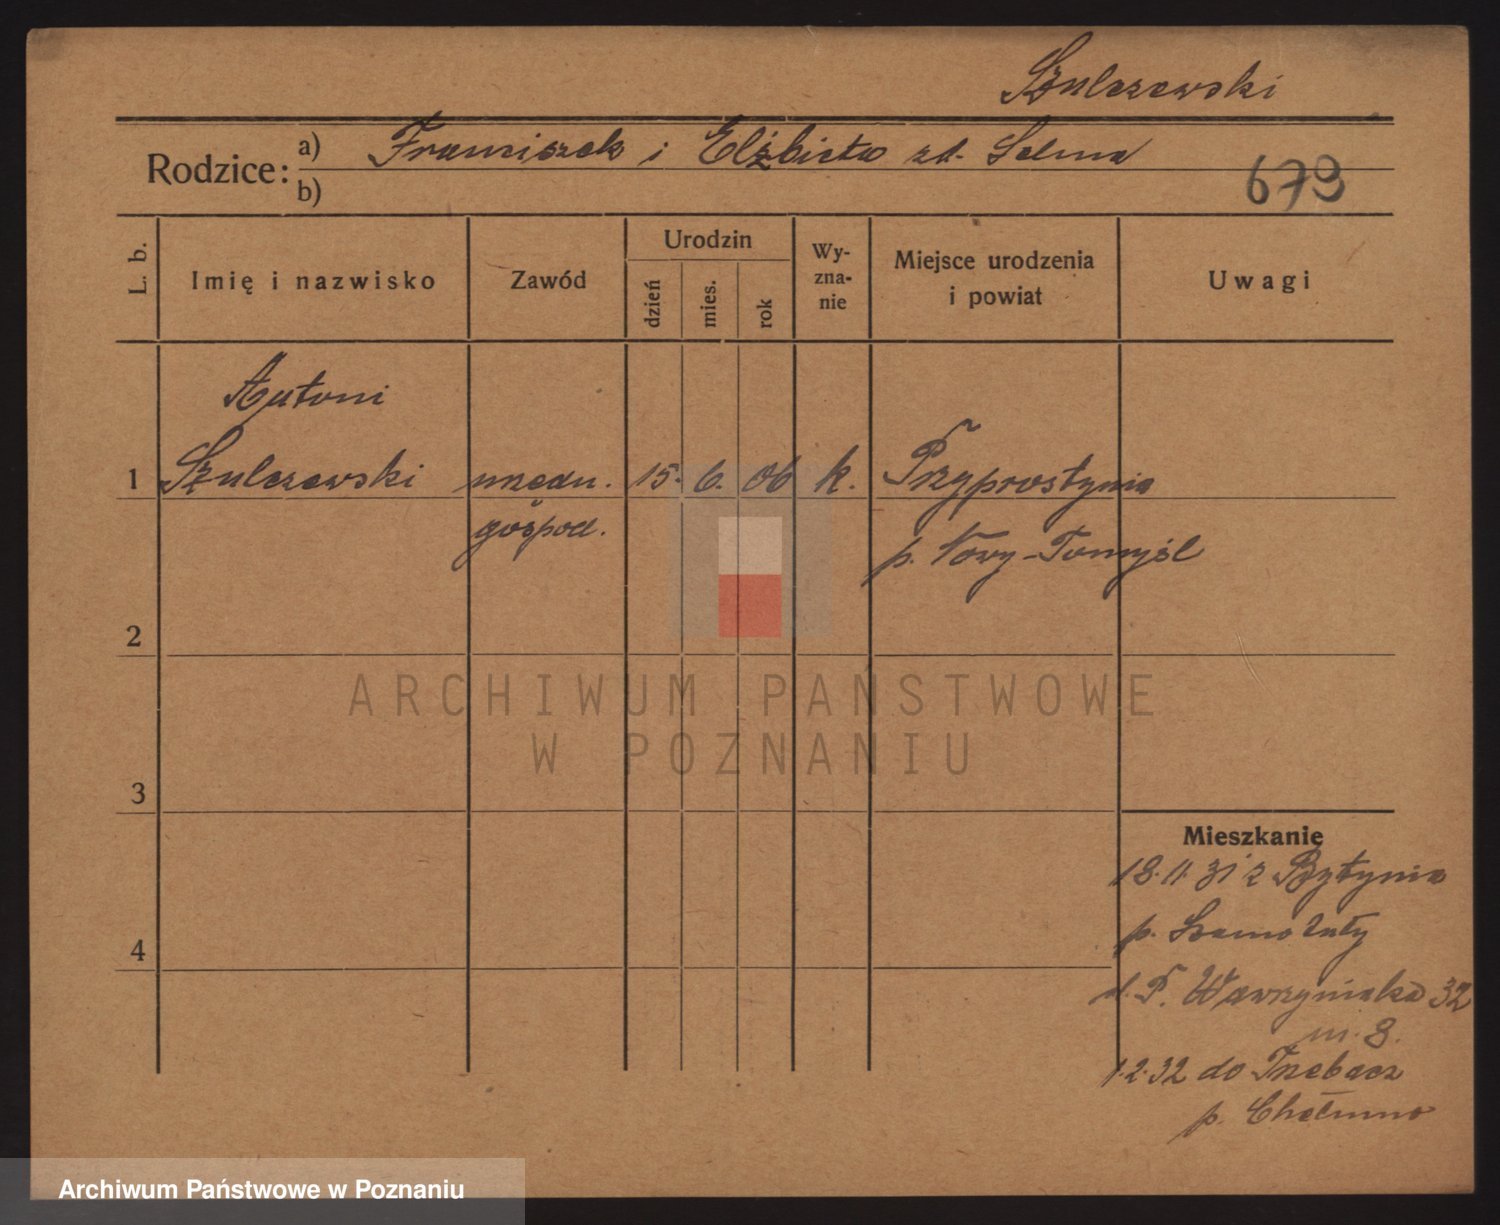 Szulczewski
Rodzice: a) Franciszek i Elżbieta zd. Selma
b)
679
L. b.
Imię i nazwisko
Zawód
Urodzin
dzień
mies.
rok
Wy-
zna-
nie
Miejsce urodzenia
i powiat
Uwagi
Antoni
1 Szulczewski urzędn. 15. 6. 06 k. Przyprostynia
gospod. p. Nowy-Tomyśl
2
3
4
Mieszkanie
18.11.31 z Bytynia
p. Szamotuły
P. Wawrzyniaka 32
m. 8.
1.2.32 do Trzebacz
p. Chełmno
ARCHIWUM PAŃSTWOWE
W POZNANIU
Archiwum Państwowe w Poznaniu